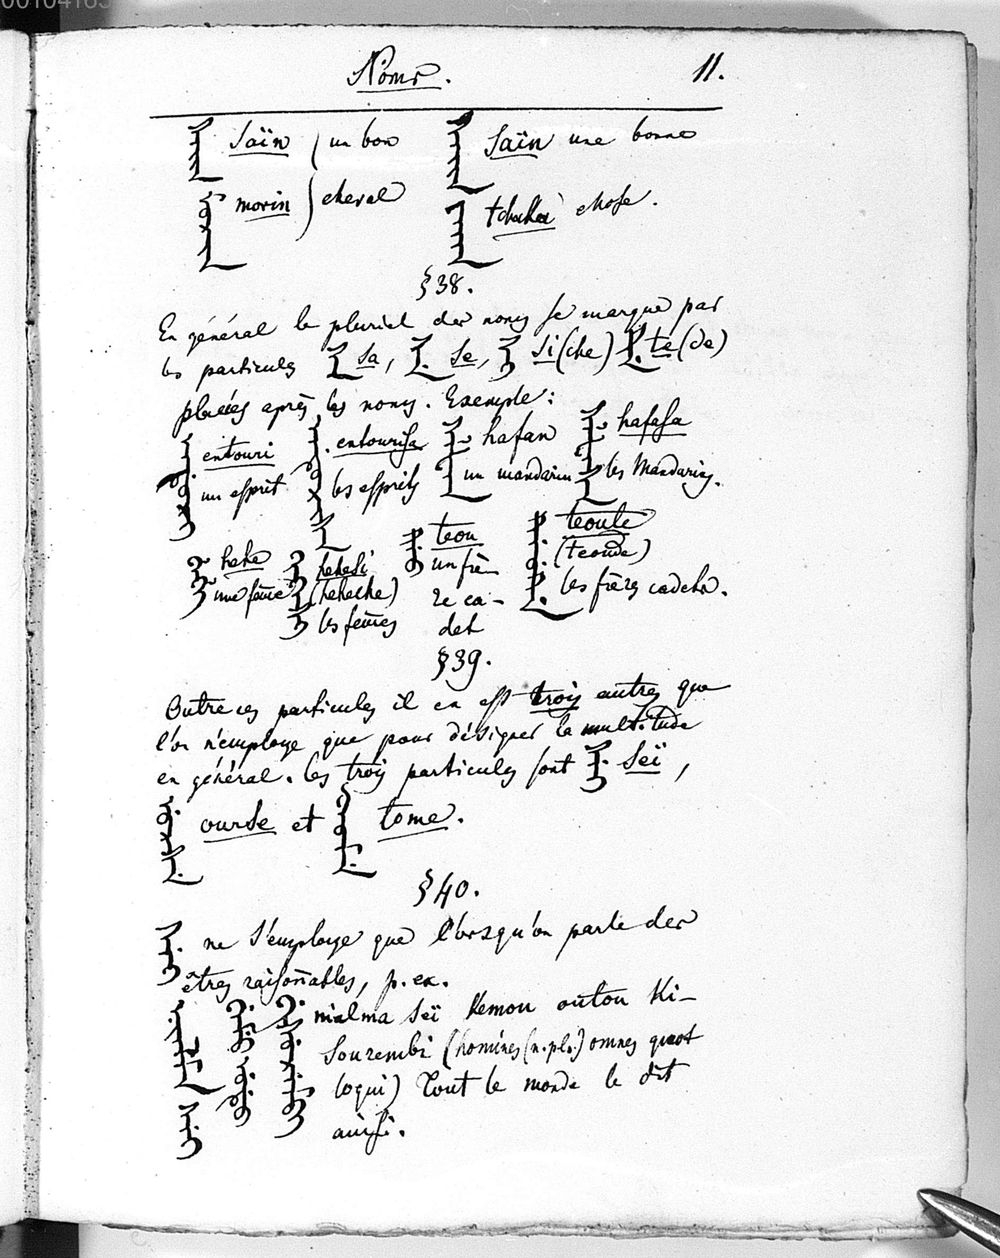 00104165
Noms. 11.
ᠰᠠᡳᠨ saïn un bon ᠰᠠᡳᠨ saïn une bonne
ᠮᠣᡵᡳᠨ morin cheval tchaka chose.
§38.
En général le pluriel des noms se marque par
les particules ᠰᠠ sa, ᠰᡝ se, ᠰᡳ si (che) ᡨᡝ te (de)
placées après les noms. Exemple:
entouri entourisa hafan hafasa
un esprit les esprits un mandarin les Mandarins.
hehe hehesi teou teoute
une feme (heheche) un frè- (teoude)
les femes re ca- les frères cadets.
det
§39.
Outre ces particules il en est trois autres que
l'on n'employe que pour désigner la multitude
en général. les trois particules sont ᠰᡝᡳ seï,
ourse et tome.
§40.
ne s'employe que lorsqu'on parle des
êtres raisonables, p. ex.
nialma seï kemou outou ki-
sourembi (homines (n. pl.) omnes quot
loqui) Tout le monde le dit
ainsi.